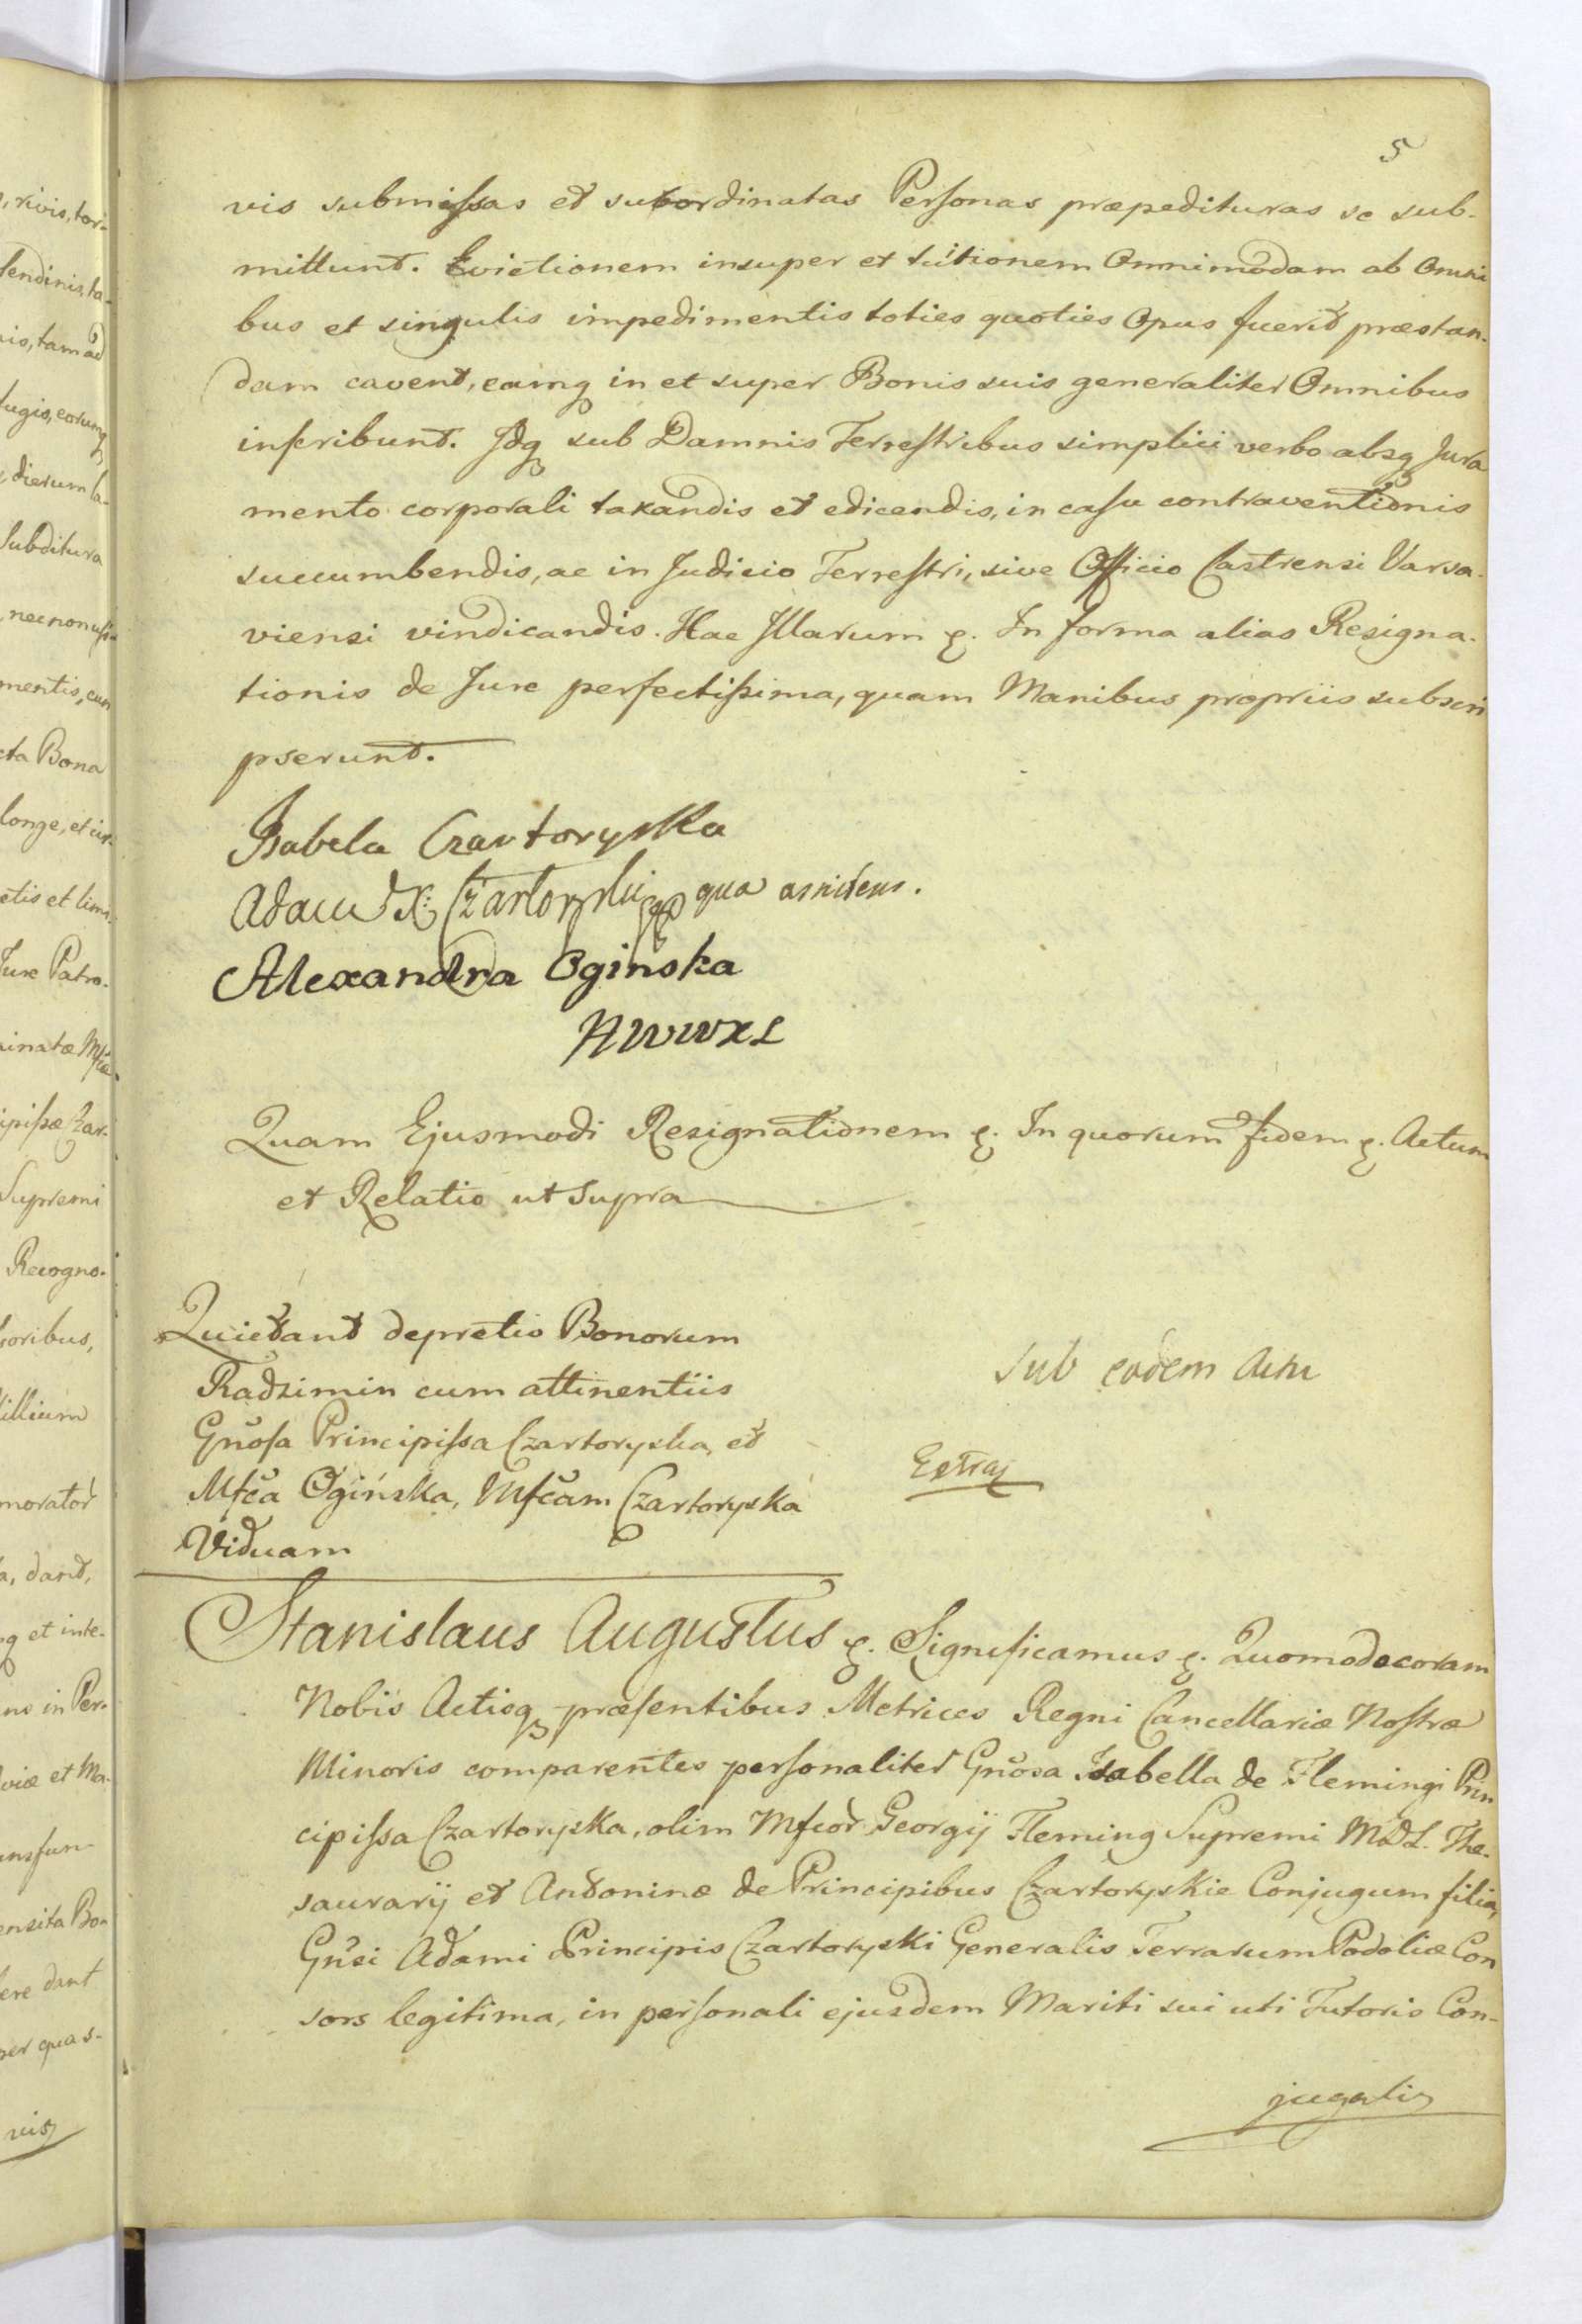 5
vis submissas et subordinatas Personas præpedituras se sub-
mittunt. Evictionem insuper et tuitionem Omnimodam ab Omni
bus et singulis impedimentis toties quoties Opus fuerit præstan-
dam cavent, eamq in et super Bonis suis generaliter Omnibus
inscribunt. Idq sub Damnis Terrestribus simplici verbo absq Jura
mento corporali taxandis et edicendis, in casu contraventionis
succumbendis, ac in Judicio Terrestri, sive Officio Castrensi Varsa-
viensi vindicandis. Hac Illarum &. In forma alias Resigna-
tionis de Jure perfectissima, quam Manibus propriis subscri
pserunt.
Isabela Czartoryska
Adam X: Czartoryski qua assistens.
Alexandra Oginska
HWWXL
Quam Ejusmodi Resignationem &. In quorum fidem &. Actum
et Relatio ut Supra
Quietant de pretio Bonorum
Radzimin cum attinentiis
Gnosa Principissa Czartoryska, et
Mfca Ogińska, Mfcam Czartoryska
Viduam
sub eodem Actu
Extrag
Stanislaus Augustus &. Significamus &. Quomodo coram
Nobis Actisq præsentibus Metrices Regni Cancellariæ Nostræ
Minoris comparentes personaliter Gnosa Isabella de Flemingi Prin
cipissa Czartoryska, olim Mfcor Georgij Fleming Supremi M.D.L. The-
saurarij et Antoninæ de Principibus Czartoryskie Conjugum filia,
Gnsi Adami Principis Czartoryski Generalis Terrarum Podoliæ Con
sors legitima, in personali ejusdem Mariti sui uti Tutoris Con-
jugalis